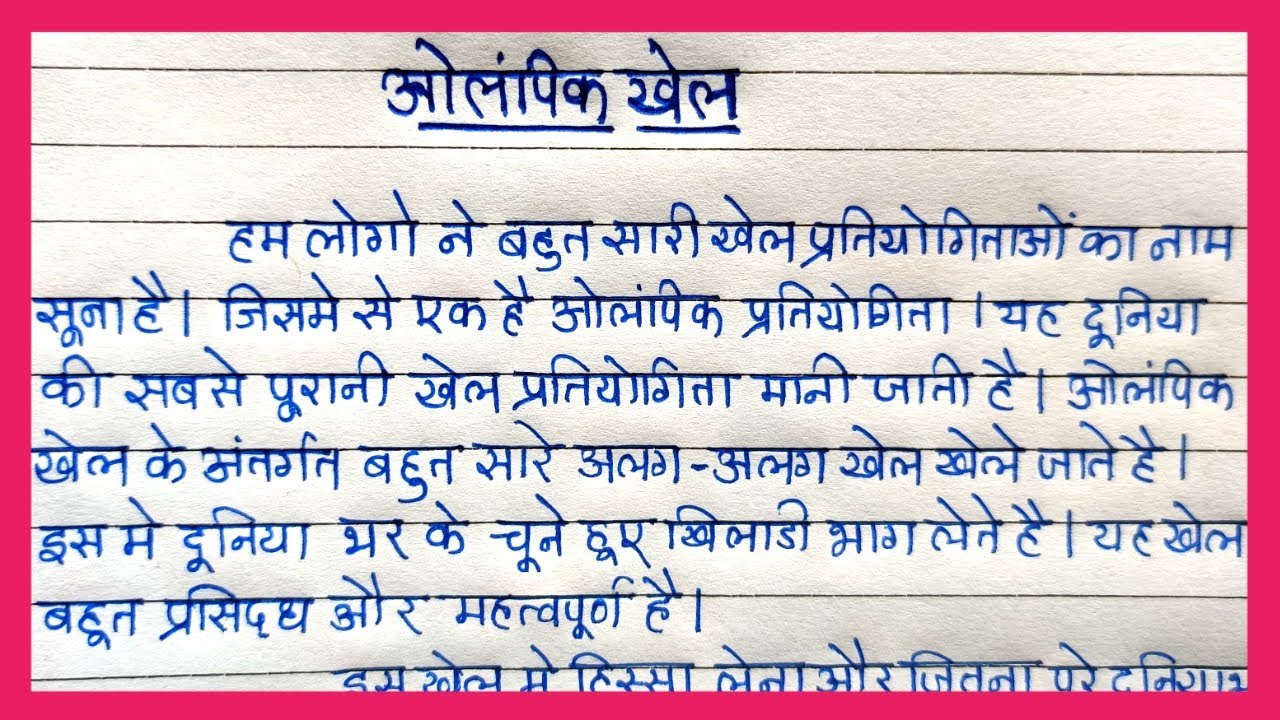 ओलंपिक खेल
हम लोगो ने बहुत सारी खेल प्रतियोगिताओं का नाम
सूना है। जिसमे से एक है ओलंपिक प्रतियोगिता। यह दूनिया
की सबसे पूरानी खेल प्रतियोगिता मानी जाती है। ओलंपिक
खेल के अंतर्गत बहुत सारे अलग-अलग खेल खेले जाते है।
इस मे दूनिया भर के चूने हूए खिलाडी भाग लेते है। यह खेल
बहूत प्रसिद्ध और महत्वपूर्ण है।
इस खेल मे हिस्सा लेना और जितना पूरे